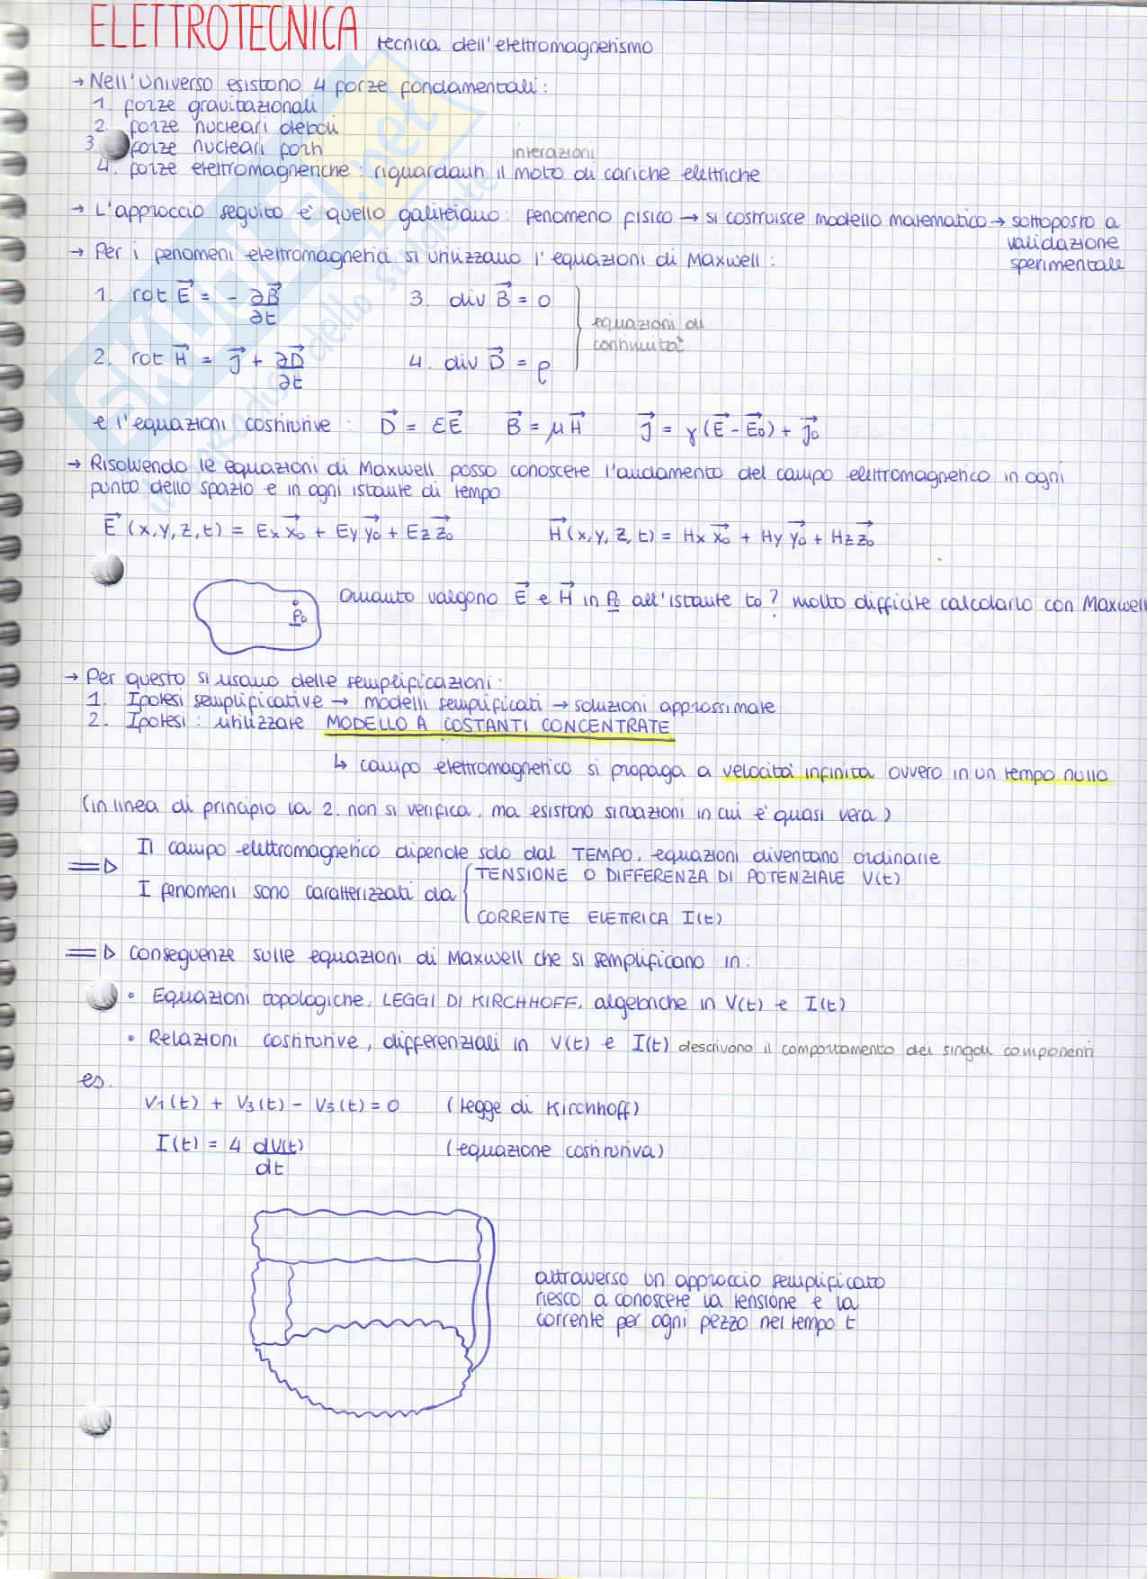 ELETTROTECNICA tecnica dell'elettromagnetismo
→ Nell'Universo esistono 4 forze fondamentali:
1. forze gravitazionali
2. forze nucleari deboli
3. forze nucleari forti
interazioni
4. forze elettromagnetiche: riguardaun il moto di cariche elettriche
→ L'approccio seguito è quello galileiano: fenomeno fisico → si costruisce modello matematico → sottoposto a
validazione
sperimentale
→ Per i fenomeni elettromagnetici si utilizzano l'equazioni di Maxwell:
1. rot E⃗ = - ∂B⃗/∂t 3. div B⃗ = 0
equazioni di
continuità
2. rot H⃗ = J⃗ + ∂D⃗/∂t 4. div D⃗ = ρ
e l'equazioni costitutive: D⃗ = εE⃗ B⃗ = μH⃗ J⃗ = γ(E⃗ - E⃗₀) + J⃗₀
→ Risolvendo le equazioni di Maxwell posso conoscere l'andamento del campo elettromagnetico in ogni
punto dello spazio e in ogni istante di tempo
E⃗(x,y,z,t) = Ex x⃗₀ + Ey y⃗₀ + Ez z⃗₀ H⃗(x,y,z,t) = Hx x⃗₀ + Hy y⃗₀ + Hz z⃗₀
P₀
Quanto valgono E⃗ e H⃗ in P₀ all'istante t₀? molto difficile calcolarlo con Maxwell
→ Per questo si usano delle semplificazioni:
1. Ipotesi semplificative → modelli semplificati → soluzioni approssimate
2. Ipotesi: utilizzare MODELLO A COSTANTI CONCENTRATE
↳ campo elettromagnetico si propaga a velocità infinita ovvero in un tempo nullo
(in linea di principio la 2. non si verifica, ma esistono situazioni in cui è quasi vera)
⇒ Il campo elettromagnetico dipende solo dal TEMPO, equazioni diventano ordinarie
TENSIONE O DIFFERENZA DI POTENZIALE V(t)
I fenomeni sono caratterizzati da
CORRENTE ELETTRICA I(t)
⇒ Conseguenze sulle equazioni di Maxwell che si semplificano in:
• Equazioni topologiche, LEGGI DI KIRCHHOFF, algebriche in V(t) e I(t)
• Relazioni costitutive, differenziali in V(t) e I(t) descrivono il comportamento dei singoli componenti
es.
V₁(t) + V₃(t) - V₅(t) = 0 (legge di Kirchhoff)
I(t) = 4 dV(t)/dt (equazione costitutiva)
attraverso un approccio semplificato
riesco a conoscere la tensione e la
corrente per ogni pezzo nel tempo t